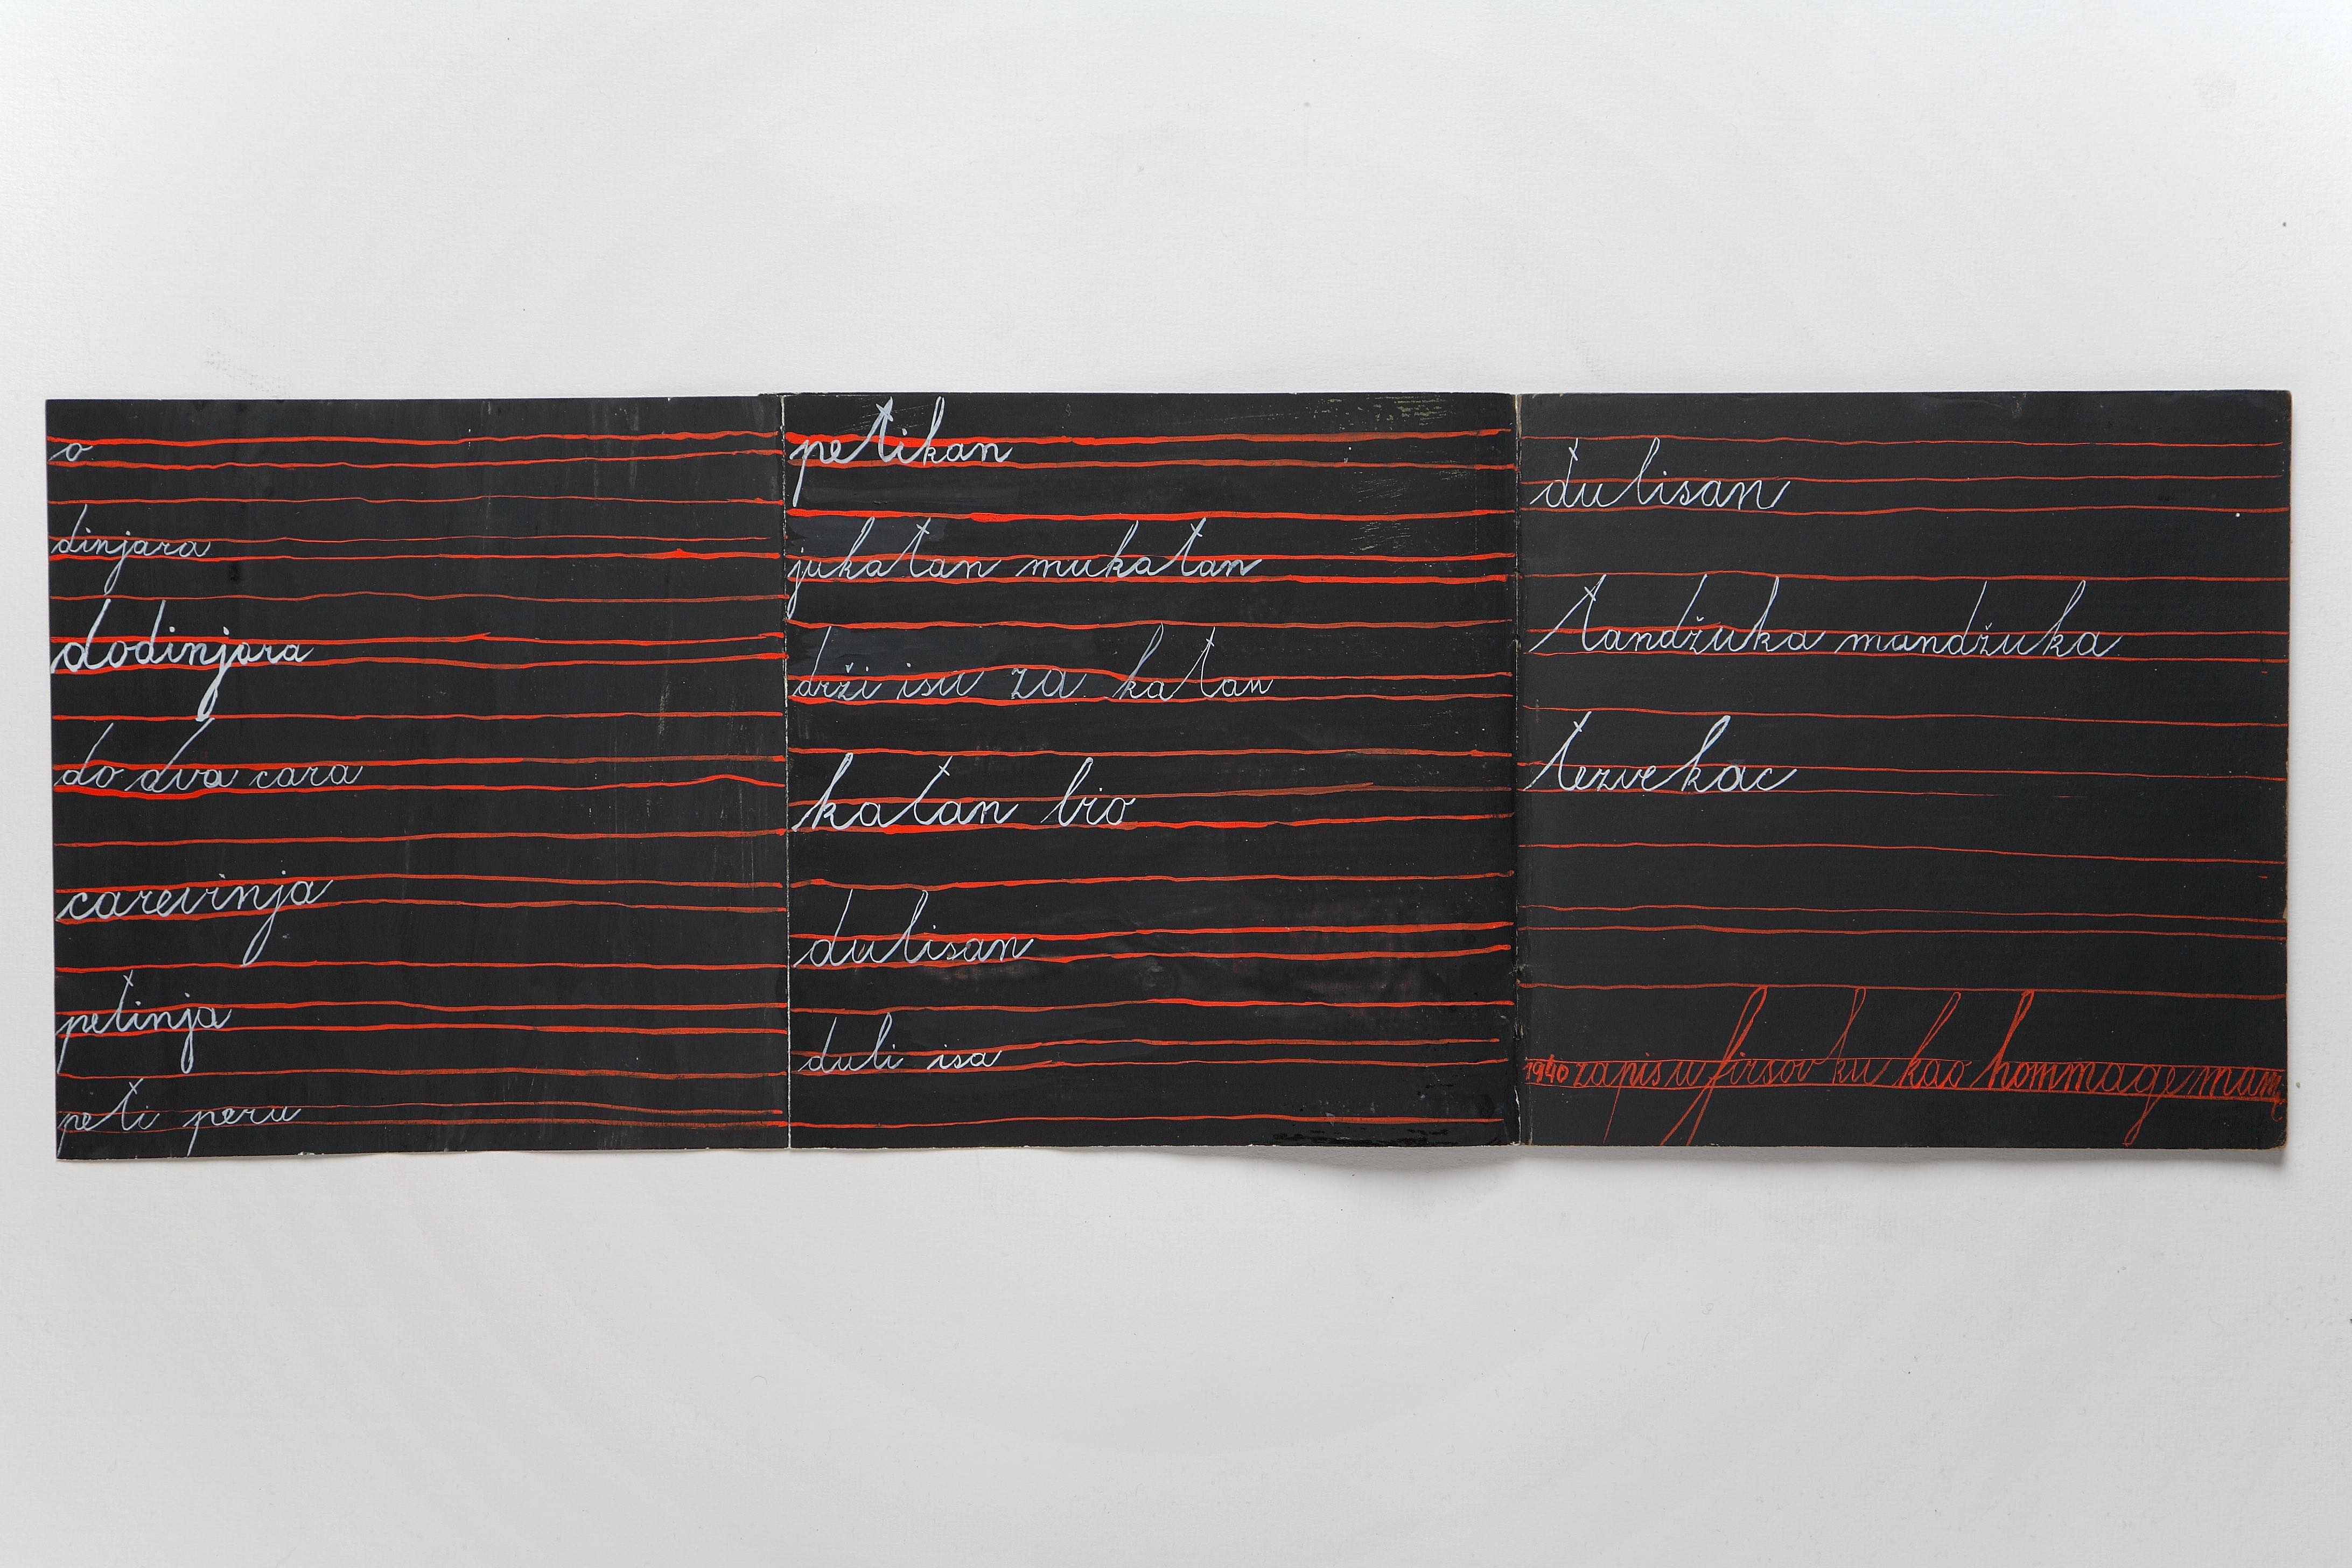 o
dinjara
dodinjara
do dva cara
carevinja
petinja
peti peru
petikan
jukatan mukatan
drži isu za katan
katan bio
dulisan
duli isa
đulisan
tandžuka mandžuka
tezvekac
1940 zapis u firsov ku kao hommage mami